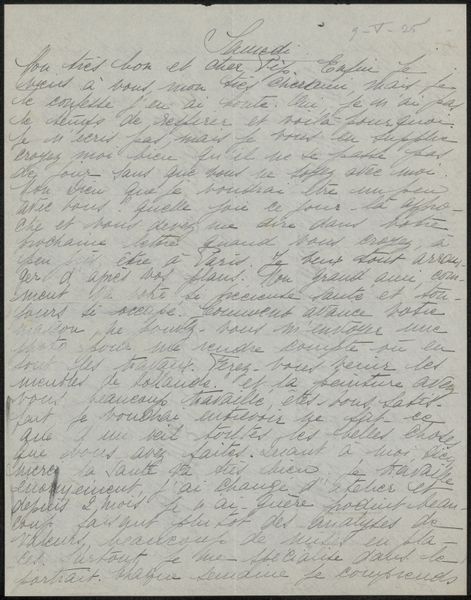 9-V-25
Samedi
Mon très bon et cher Pip. Enfin je
viens à vous, mon très cher ami, mais je
le confesse j'en ai honte. Oui je n'ai pas
le temps de respirer et voilà pourquoi
je n'écris pas, mais je vous en supplie
croyez moi bien qu'il ne se passe pas
de jour sans que vous ne soyez avec moi.
Mon Dieu que je voudrai être un peu
avec vous. Quelle joie ce jour là appro-
che et vous devez me dire dans votre
prochaine lettre quand vous croyez à
peu près être à Paris. Je veux tout arran-
ger d'après vos plans. Mon grand ami com-
ment va votre si précieuse santé et tou-
jours si occupé. Comment avance votre
maison ne pouvez-vous m'envoyer une
photo pour me rendre compte où en
sont les travaux. Ferez-vous venir les
meubles de Hollande, et la peinture avez
vous beaucoup travaillé, êtes-vous satis-
fait je voudrai entrevoir ne fut-ce
que d'un œil toutes les belles choses
que vous avez faites. Quant à moi, Dieu
merci la santé va très bien je travaille
énormément, j'ai changé d'atelier et
depuis 2 mois je n'ai guère produit beau-
coup faisant plutôt des analyses de
valeurs, beaucoup de mises en pla-
ces. Surtout je me spécialise dans le
portrait. Chaque semaine je comprends